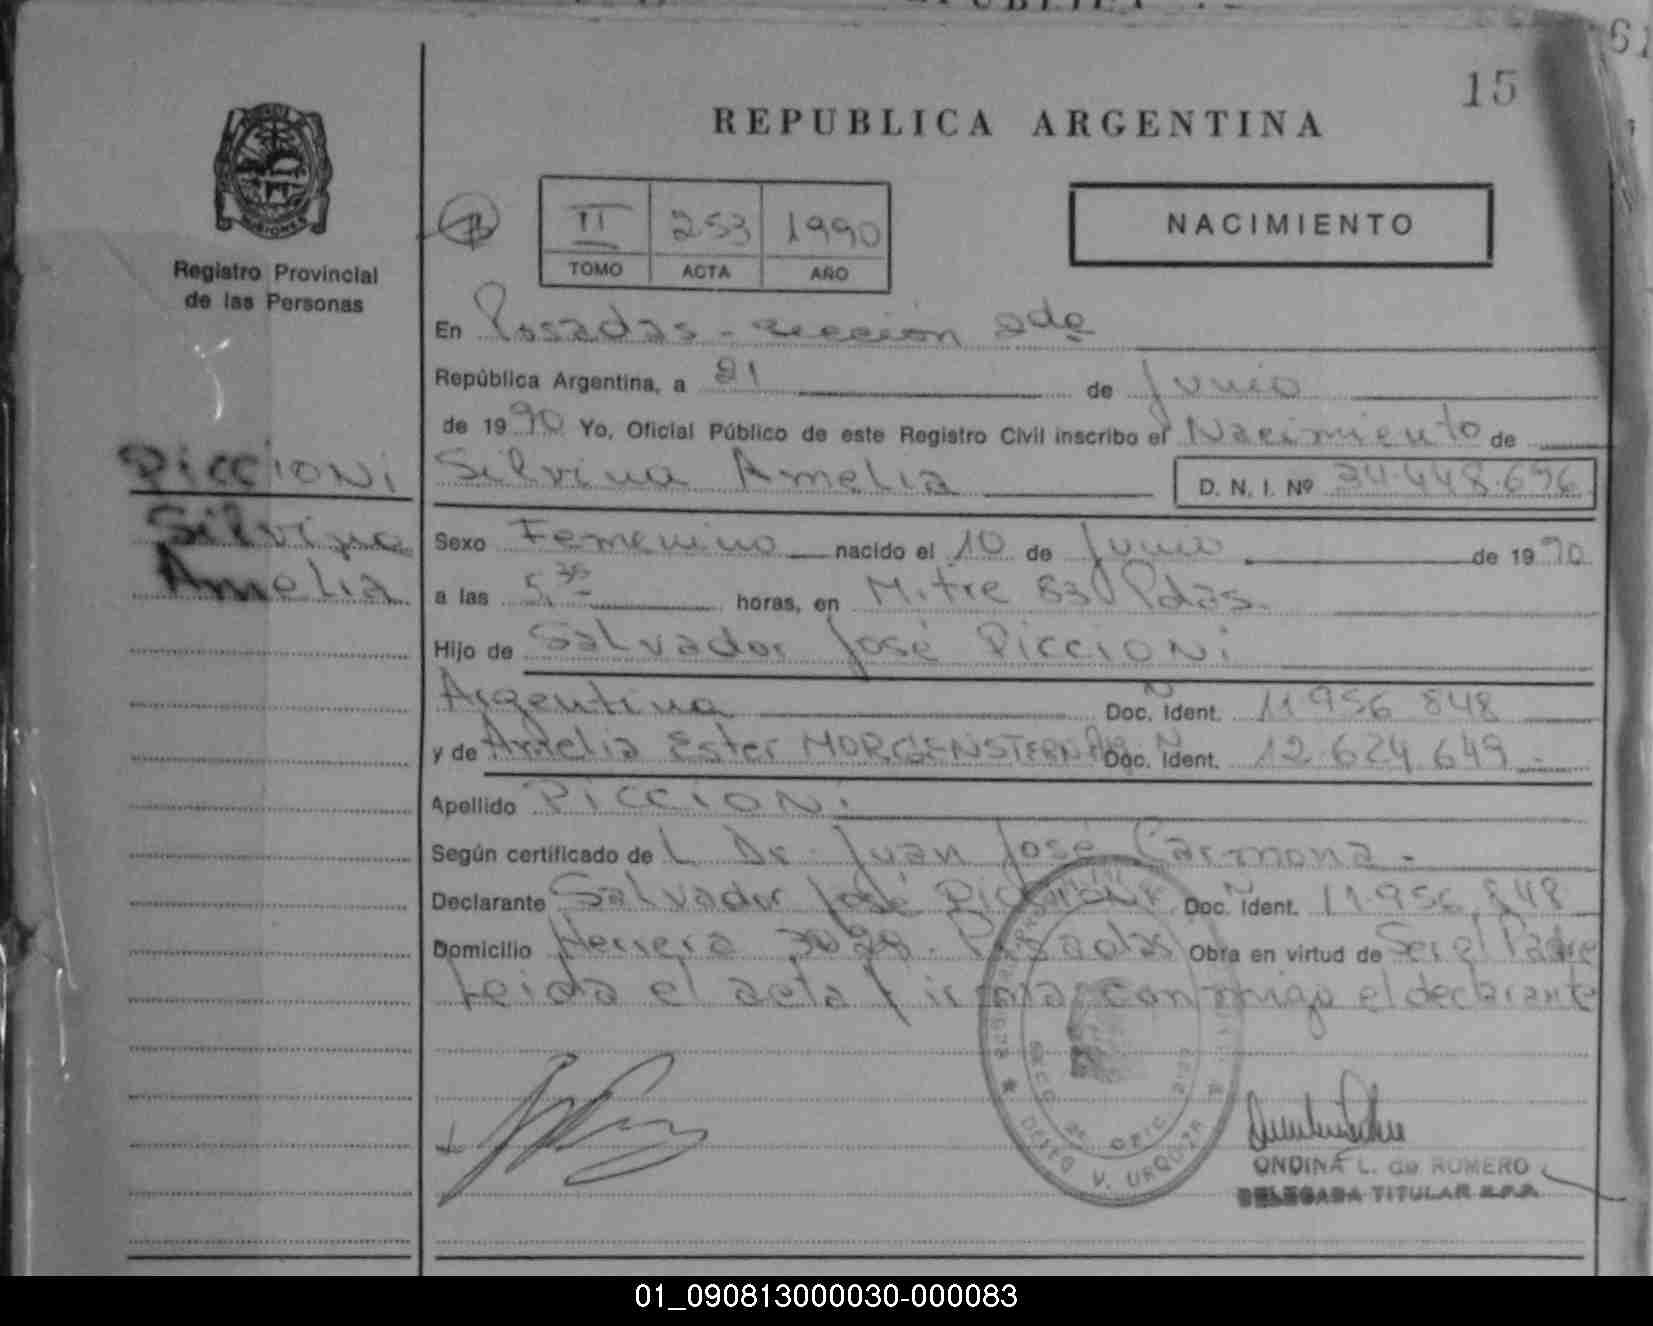 15
REPUBLICA ARGENTINA
MISIONES
Registro Provincial
de las Personas
II 253 1990
TOMO ACTA AÑO
NACIMIENTO
En Posadas - sección 2da
República Argentina, a 21 de Junio
de 1990 Yo, Oficial Público de este Registro Civil inscribo el Nacimiento de
PICCIONI
Silvina
Amelia
Silvina Amelia D. N. I. Nº 34.448.696
Sexo Femenino nacido el 10 de Junio de 1990
a las 5,30 horas, en Mitre 830 Pdas.
Hijo de Salvador José PICCIONI
Argentina Doc. Ident. 11 956 848
y de Amelia Ester MORGENSTERN Doc. Ident. 12.624.649
Apellido PICCIONI
Según certificado de L Dr. Juan José Carmona.
Declarante Salvador José Piccioni Doc. Ident. 11.956.848
Domicilio Herrera Posadas Obra en virtud de Ser el Padre
Leida el acta firma conmigo el declarante
V. URQUIZA
ONDINA L. de ROMERO
DELEGADA TITULAR R.P.P.
01_090813000030-000083